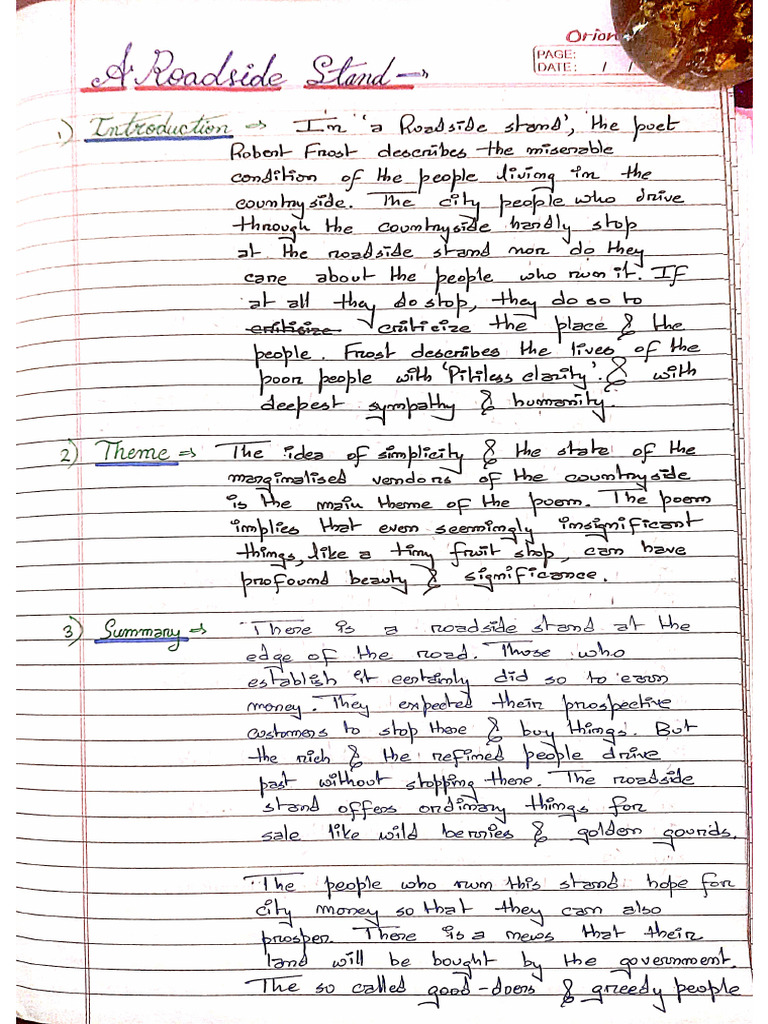 Orion
PAGE:
DATE: / /
A Roadside Stand →
1) Introduction → In 'a Roadside stand', the poet
Robert Frost describes the miserable
condition of the people living in the
countryside. The city people who drive
through the countryside hardly stop
at the roadside stand nor do they
care about the people who run it. If
at all they do stop, they do so to
criticize criticize the place & the
people. Frost describes the lives of the
poor people with 'Pitiless clarity'. & with
deepest sympathy & humanity.
2) Theme → The idea of simplicity & the state of the
marginalised vendors of the countryside
is the main theme of the poem. The poem
implies that even seemingly insignificant
things, like a tiny fruit shop, can have
profound beauty & significance.
3) Summary → There is a roadside stand at the
edge of the road. Those who
establish it certainly did so to earn
money. They expected their prospective
customers to stop there & buy things. But
the rich & the refined people drive
past without stopping there. The roadside
stand offers ordinary things for
sale like wild berries & golden gourds.
The people who run this stand hope for
city money so that they can also
prosper. There is a news that their
land will be bought by the government.
The so called good-doers & greedy people